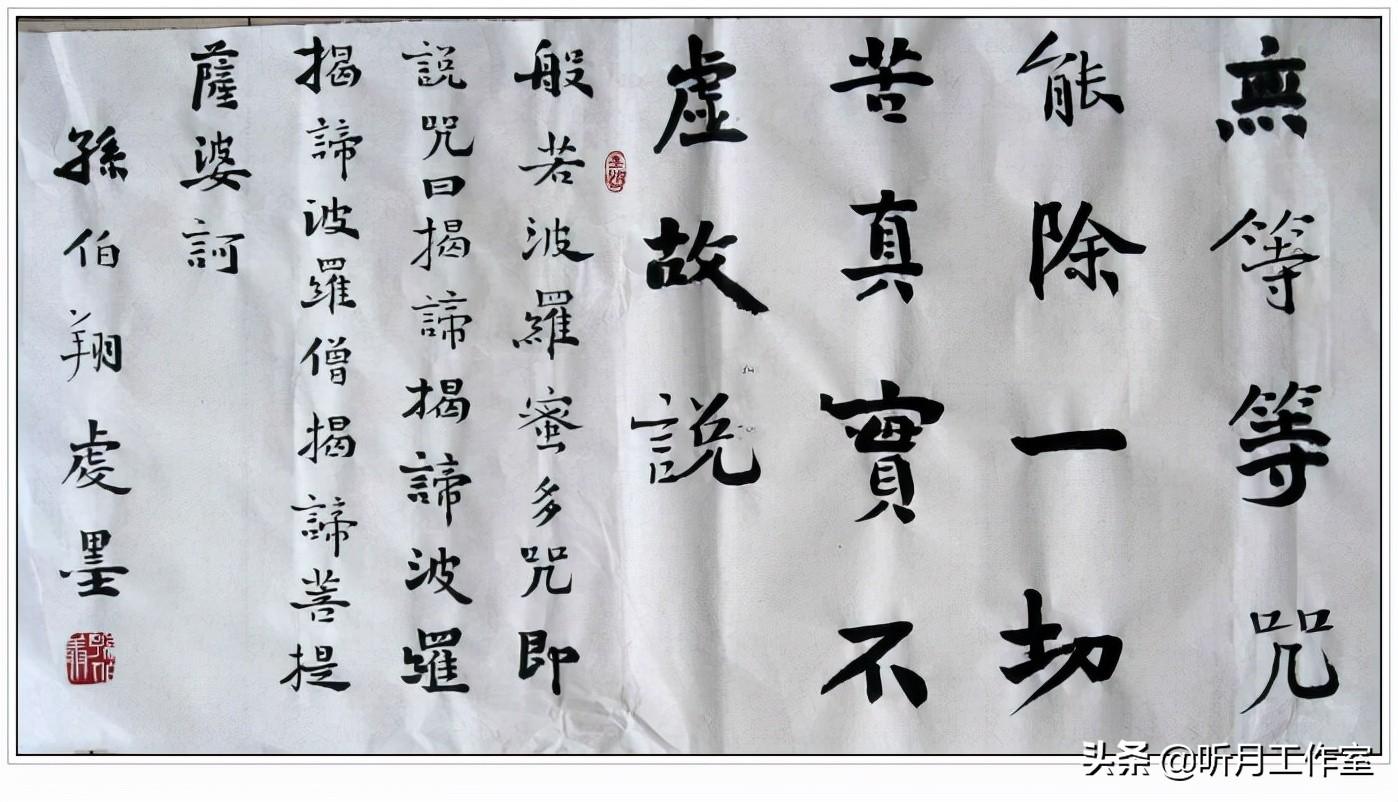 無等等咒
能除一切
苦真實不
虛故説
般若波羅蜜多咒即
説咒曰揭諦揭諦波羅
揭諦波羅僧揭諦菩提
薩婆訶
孫伯翔處墨
头条 @听月工作室